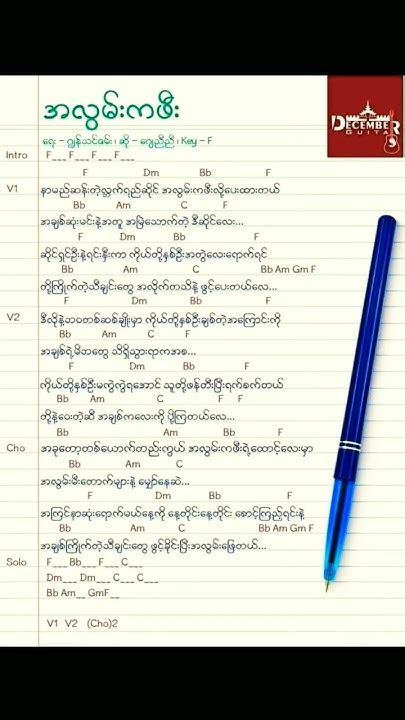 အလွမ်းကဖီး
DECEMBER
GUITAR
ရေး - ဂျွန်သင်ဇမ်း ၊ ဆို - ဂျေညီညီ ၊ Key - F
Intro F___ F___ F___ F___
F Dm Bb F
V1 နာမည်ဆန်းတဲ့လ္ဘက်ရည်ဆိုင် အလွမ်းကဖီးလို့ပေးထားတယ်
Bb Am C F
အချစ်ဆုံးမင်းနဲ့အတူ အမြဲသောက်တဲ့ ဒီဆိုင်လေး...
F Dm Bb F
ဆိုင်ရှင်ဦးနဲ့ရင်းနှီးကာ ကိုယ်တို့နှစ်ဦးအတွဲလေးရောက်ရင်
Bb Am C Bb Am Gm F
တို့ကြိုက်တဲ့သီချင်းတွေ အလိုက်တသိနဲ့ ဖွင့်ပေးတယ်လေ...
F Dm Bb F
V2 ဒီလိုနဲ့ဘဝတစ်ဆစ်ချိုးမှာ ကိုယ်တို့နှစ်ဦးချစ်တဲ့အကြောင်းကို
Bb Am C F
အချစ်ရဲ့မိဘတွေ သိရှိသွားရာကအစ...
F Dm Bb F
ကိုယ်တို့နှစ်ဦးမကွဲကွဲရအောင် သူတို့ဖန်တီးပြီးရက်စက်တယ်
Bb Am C F F
တို့နဲ့ဝေးတဲ့ဆီ အချစ်ကလေးကို ပို့ကြတယ်လေ...
Bb Am Bb F
Cho အခုတော့တစ်ယောက်တည်းကွယ် အလွမ်းကဖီးရဲ့ထောင့်လေးမှာ
Bb Am C
အလွမ်းမီးတောက်များနဲ့ မျှော်နေဆဲ...
F Dm Bb F
အကြင်နာဆုံးရောက်မယ်နေ့ကို နေ့တိုင်းနေ့တိုင်း စောင့်ကြည့်ရင်းနဲ့
Bb Am C Bb Am Gm F
အချစ်ကြိုက်တဲ့သီချင်းတွေ ဖွင့်ခိုင်းပြီးအလွမ်းဖြေတယ်...
Solo F___ Bb___ F___ C___
Dm___ Dm___ C___ C___
Bb Am__ GmF__
V1 V2 (Cho)2